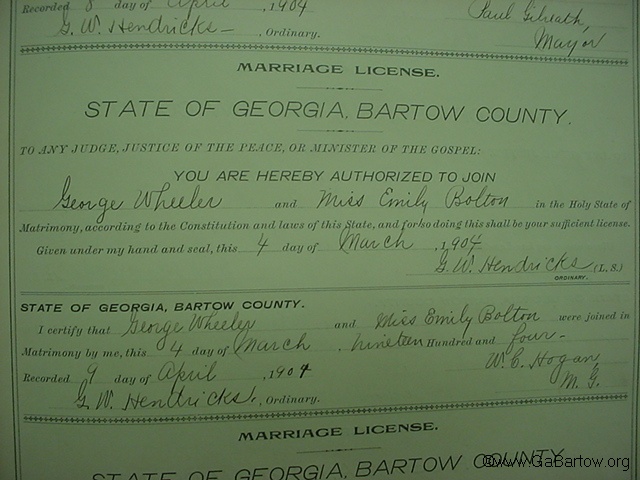 Recorded 8 day of April 1904
Paul Gilreath,
G. W. Hendricks , Ordinary.
Mayor
MARRIAGE LICENSE.
STATE OF GEORGIA, BARTOW COUNTY.
TO ANY JUDGE, JUSTICE OF THE PEACE, OR MINISTER OF THE GOSPEL:
YOU ARE HEREBY AUTHORIZED TO JOIN
George Wheeler and Miss Emily Bolton in the Holy State of
Matrimony, according to the Constitution and laws of this State, and for so doing this shall be your sufficient license.
Given under my hand and seal, this 4 day of March , 1904
G. W. Hendricks (L. S.)
ORDINARY.
STATE OF GEORGIA, BARTOW COUNTY.
I certify that George Wheeler and Miss Emily Bolton were joined in
Matrimony by me, this 4 day of March , nineteen Hundred and four
Recorded 9 day of April , 1904
W. C. Hogan,
M. G.
G. W. Hendricks , Ordinary.
MARRIAGE LICENSE.
STATE OF GEORGIA, BARTOW COUNTY.
©www.GaBartow.org